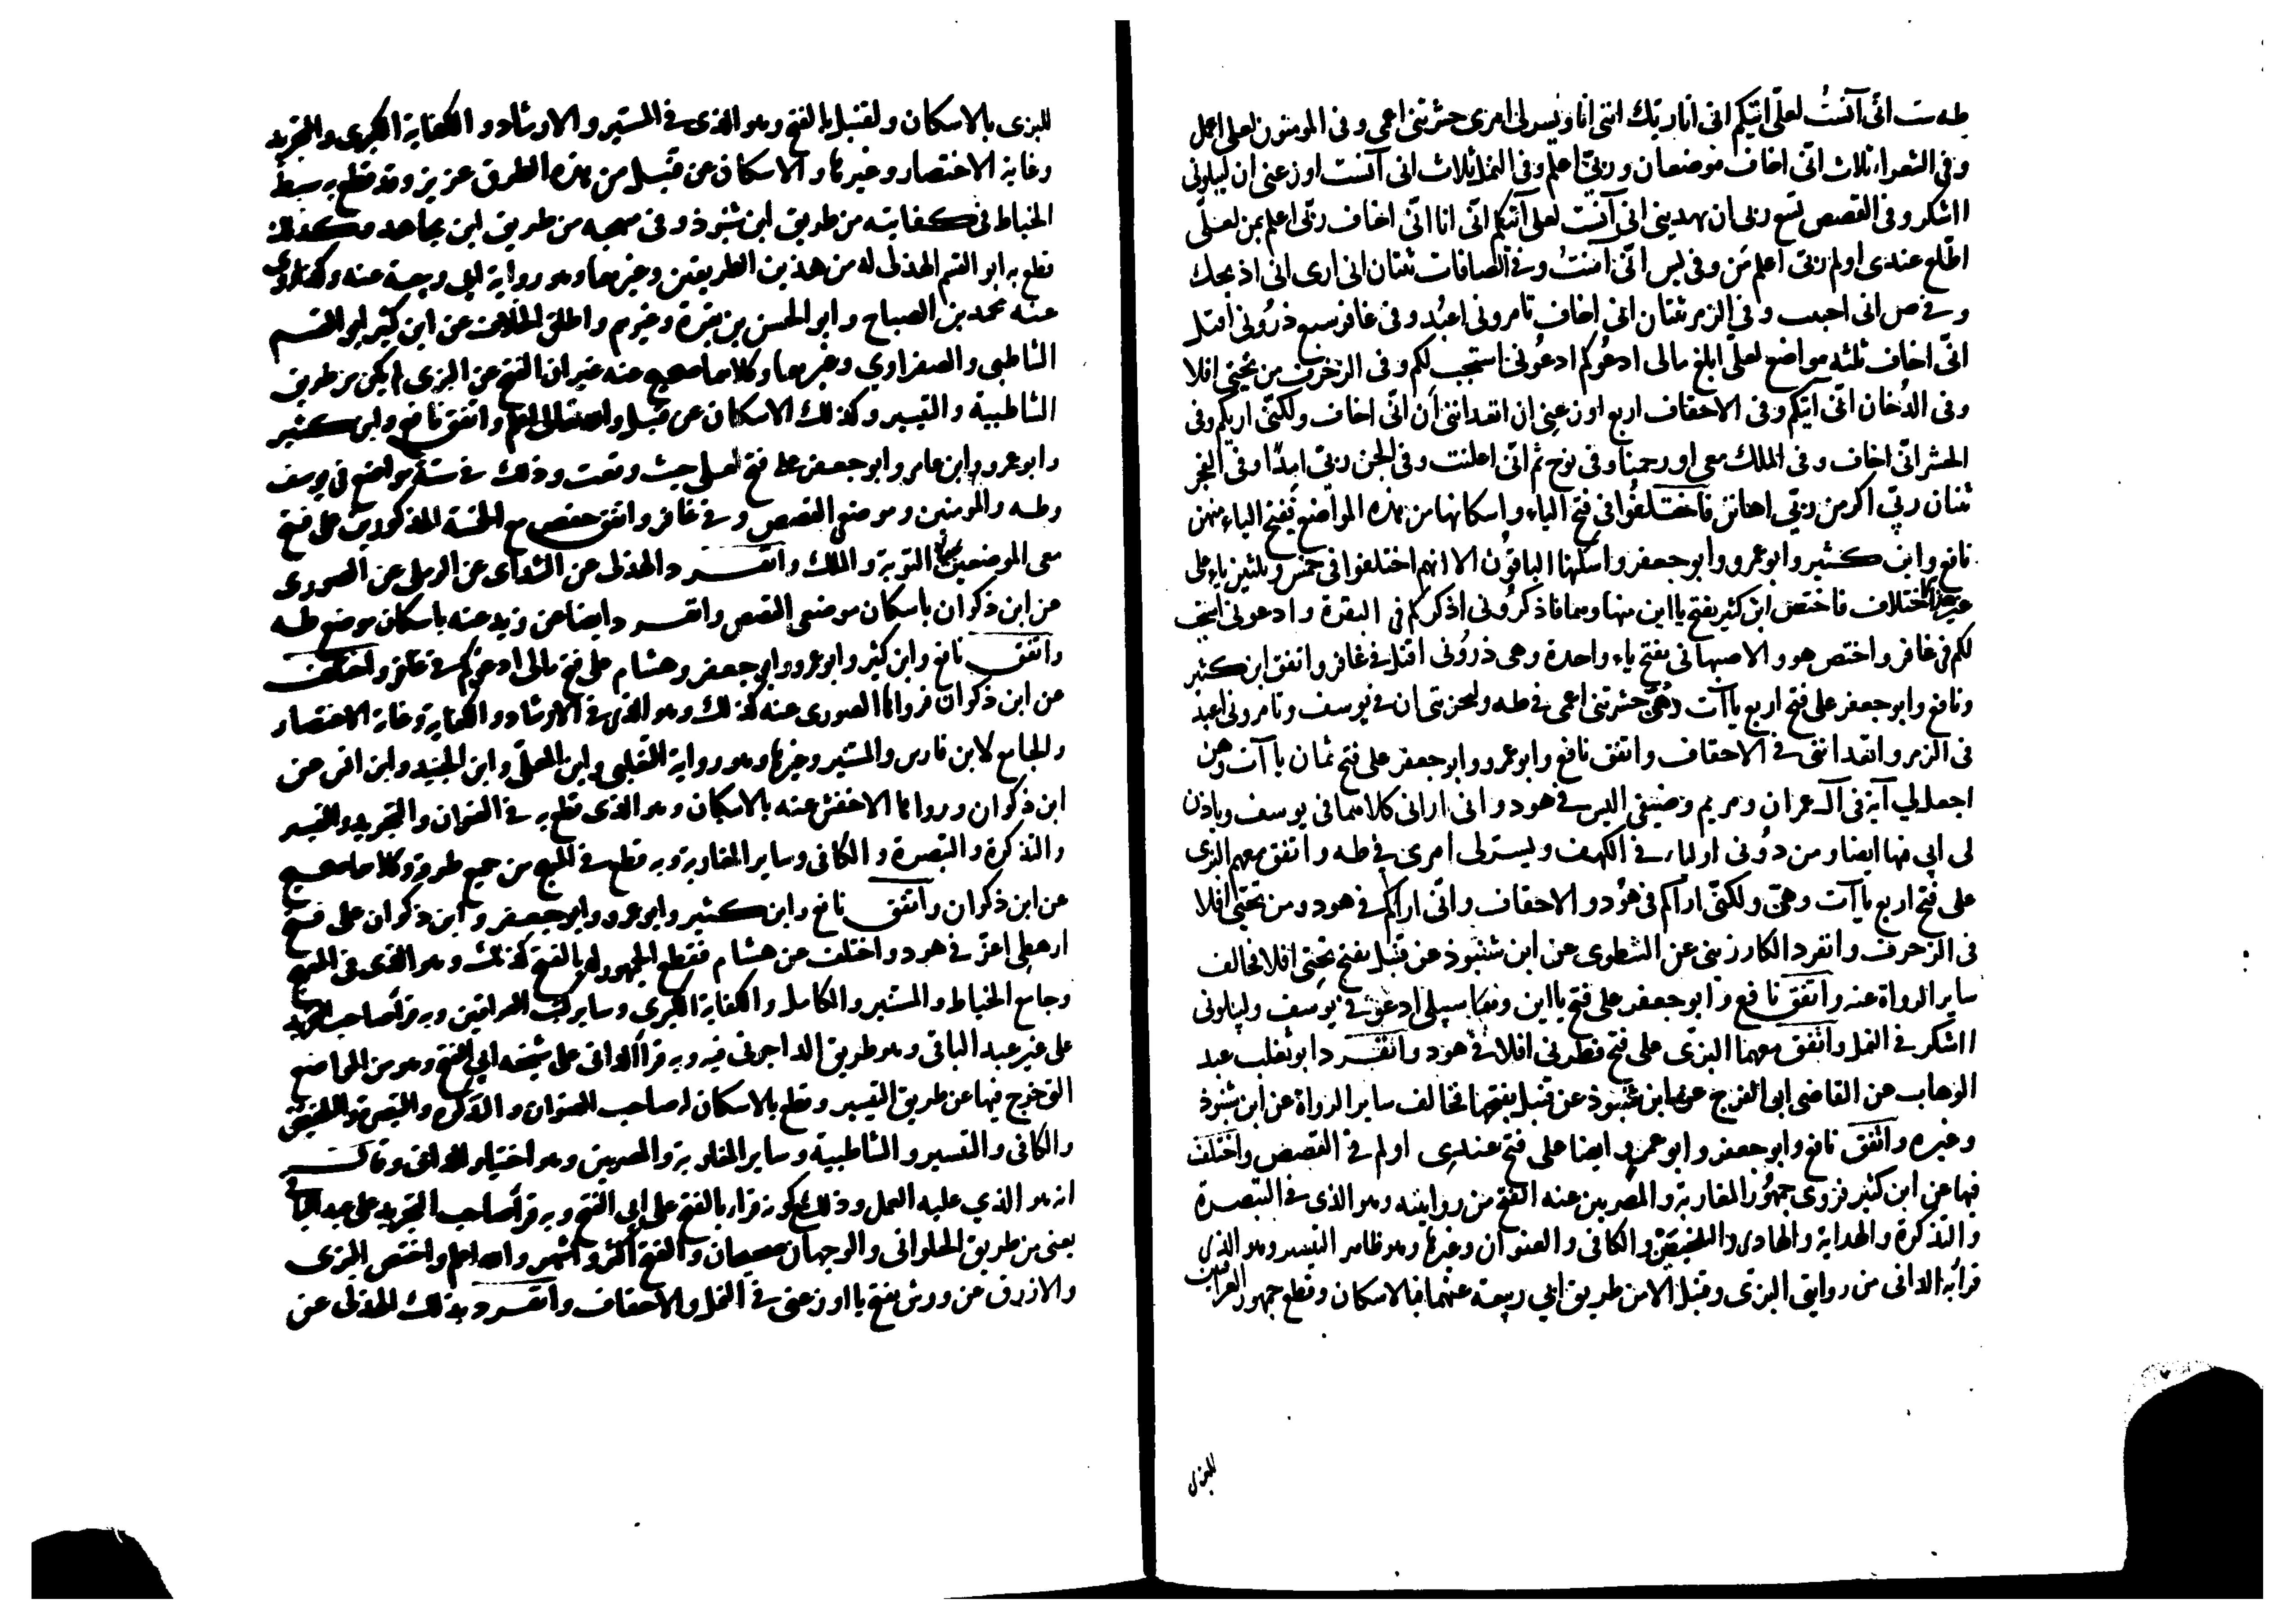 طه ست انى آنست لعلى آتيكم انى انا ربك اننى انا ويسر لى امرى حشرتنى اعمى وفى المومنون لعلى اعمل
وفى الشعراء ثلاث انى اخاف موضعان وربى اعلم وفى النمل ثلاث انى آنست اوزعنى ان ليبلونى
ااشكر وفى القصص تسع ربى ان يهدينى انى آنست لعلى آتيكم انى انا انى اخاف ربى اعلم بمن لعلى
اطلع عندى اولم ربى اعلم من وفى يس انى آمنت وفى الصافات ثنتان انى ارى انى اذبحك
وفى ص انى احببت وفى الزمر ثنتان انى اخاف تامرونى اعبد وفى غافر سبع ذرونى اقتل
انى اخاف ثلثه مواضع لعلى ابلغ مالى ادعوكم ادعونى استجب لكم وفى الزخرف من تحتى افلا
وفى الدخان انى آتيكم وفى الاحقاف اربع اوزعنى ان اتعداننى ان انى اخاف ولكنى اريكم وفى
الحشر انى اخاف وفى الملك معى او رحمنا وفى نوح ثم انى اعلنت وفى الجن ربى امدا وفى الفجر
ثنتان ربى اكرمن ربى اهانن فاختلفوا فى فتح الياء واسكانها من هذه المواضع ففتح الياء منهن
نافع وابن كثير وابو عمرو وابو جعفر واسكنها الباقون الا انهم اختلفوا فى خمس وثلثين ياء على
غير هذا الاختلاف فاختص ابن كثير بفتح ياءين منها وهما فاذكرونى اذكركم فى البقرة وادعونى استجب
لكم فى غافر واختص هو والاصبهانى بفتح ياء واحدة وهى ذرونى اقتل فى غافر واتفق ابن كثير
ونافع وابو جعفر على فتح اربع ياآت وهى حشرتنى اعمى فى طه وليحزننى ان فى يوسف وتامرونى اعبد
فى الزمر واتعداننى فى الاحقاف واتفق نافع وابو عمرو وابو جعفر على فتح ثمان ياآت وهن
اجعل لى آية فى آل عمران ومريم وضيفى اليس فى هود وانى ارانى كلاهما فى يوسف وياذن
لى ابى فيها ايضا ومن دونى اولياء فى الكهف ويسر لى امرى فى طه واتفق معهم البزى
على فتح اربع ياآت وهى ولكنى اراكم فى هود والاحقاف وانى اراكم فى هود ومن تحتى افلا
فى الزخرف وانفرد الكارزينى عن الشطوى عن ابن شنبوذ عن قنبل بفتح تحتى افلا فخالف
ساير الرواة عنه واتفق نافع وابو جعفر على فتح ياءين وهما سبيلى ادعو فى يوسف وليبلونى
ااشكر فى النمل واتفق معهما البزى على فتح فطرنى افلا فى هود وانفرد ابو تغلب عبد
الوهاب عن القاضى ابى الفرج عن ابن شنبوذ عن قنبل بفتحها فخالف ساير الرواة عن ابن شنبوذ
وغيره واتفق نافع وابو جعفر وابو عمرو ايضا على فتح عندى اولم فى القصص واختلف
فيها عن ابن كثير فروى جمهور المغاربة والمصريين عنه الفتح من روايتيه وهو الذى فى التبصرة
والتذكرة والهداية والهادى والتلخيصين والكافى والعنوان وغيرها وهو ظاهر التيسير وهو الذى
قرأ به الدانى من روايتى البزى وقنبل الا من طريق ابى ربيعة عنهما فبالاسكان وقطع جمهور العراقيين
للبزى
للبزى بالاسكان ولقنبل بالفتح وهو الذى فى المستنير والارشاد والكفاية الكبرى والتجريد
وغاية الاختصار وغيرها والاسكان عن قنبل من هذه الطرق عزيز وقد قطع به سبط
الخياط فى كفايته من طريق ابن شنبوذ وفى مبهجه من طريق ابن مجاهد وكذلك
قطع به ابو القسم الهذلى له من هذين الطريقين وغيرهما وهو رواية ابى ربيعة عنه وكذا روى
عنه محمد بن الصباح وابو الحسن بن بقرة وغيرهم واطلق الخلاف عن ابن كثير ابو القسم
الشاطبى والصفراوى وغيرهما وكلاهما صحيح عنه غير ان الفتح عن البزى لم يكن من طريق
الشاطبية والتيسير وكذلك الاسكان عن قنبل والله تعالى اعلم واتفق نافع وابن كثير
وابو عمرو وابن عامر وابو جعفر على فتح لعلى حيث وقعت وذلك فى ستة مواضع فى يوسف
وطه والمومنين وموضعى القصص وفى غافر واتفق حفص مع الخمسة المذكورين على فتح
معى الموضعين فى التوبة والملك وانفرد الهذلى عن الشذاى عن الرملى عن الصورى
عن ابن ذكوان باسكان موضعى القصص وانفرد ايضا عن زيد عنه باسكان موضع طه
واتفق نافع وابن كثير وابو عمرو وابو جعفر وهشام على فتح مالى ادعوكم فى غافر واختلف
عن ابن ذكوان فرواها الصورى عنه كذلك وهو الذى فى الارشاد والكفاية وغاية الاختصار
والجامع لابن فارس والمستنير وغيرها وهو رواية التغلبى وابن المعلى وابن الجنيد وابن انس عن
ابن ذكوان ورواها الاخفش عنه بالاسكان وهو الذى قطع به فى العنوان والتجريد والتيسير
والتذكرة والتبصرة والكافى وساير المغاربة وبه قطع فى المبهج من جميع طرقه وكلاهما صحيح
عن ابن ذكوان واتفق نافع وابن كثير وابو عمرو وابو جعفر وابن ذكوان على فتح
ارهطى اعز فى هود واختلف عن هشام فقطع الجمهور له بالفتح كذلك وهو الذى فى المبهج
وجامع الخياط والمستنير والكامل والكفاية الكبرى وساير كتب العراقيين وبه قرأ صاحب التجريد
على غير عبد الباقى وهو طريق الداجونى فيه وبه قرأ الدانى على شيخه ابى الفتح وهو من المواضع
التى خرج فيها عن طريق التيسير وقطع بالاسكان له صاحب العنوان والتذكرة والتبصرة والتلخيصين
والكافى والتيسير والشاطبية وساير المغاربة والمصريين وهو اختيار الدانى وقال
انه هو الذى عليه العمل وذلك مع كونه قرا بالفتح على ابى الفتح وبه قرأ صاحب التجريد على عبد الباقى
يعنى من طريق الحلوانى والوجهان صحيحان والفتح اكثر واشهر والله اعلم واختص البزى
والازرق عن ورش بفتح يا اوزعنى فى النمل والاحقاف وانفرد بذلك الهذلى عن